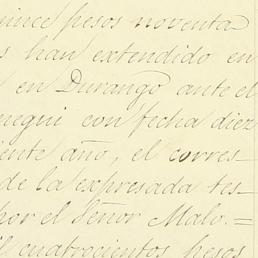 uince pesos noventa
s han extendido en
en Durango ante el
negui con fecha diez
ente año, el corres=
de la expresada tes=
por el Señor Malo.=
il cuatrocientos pesos